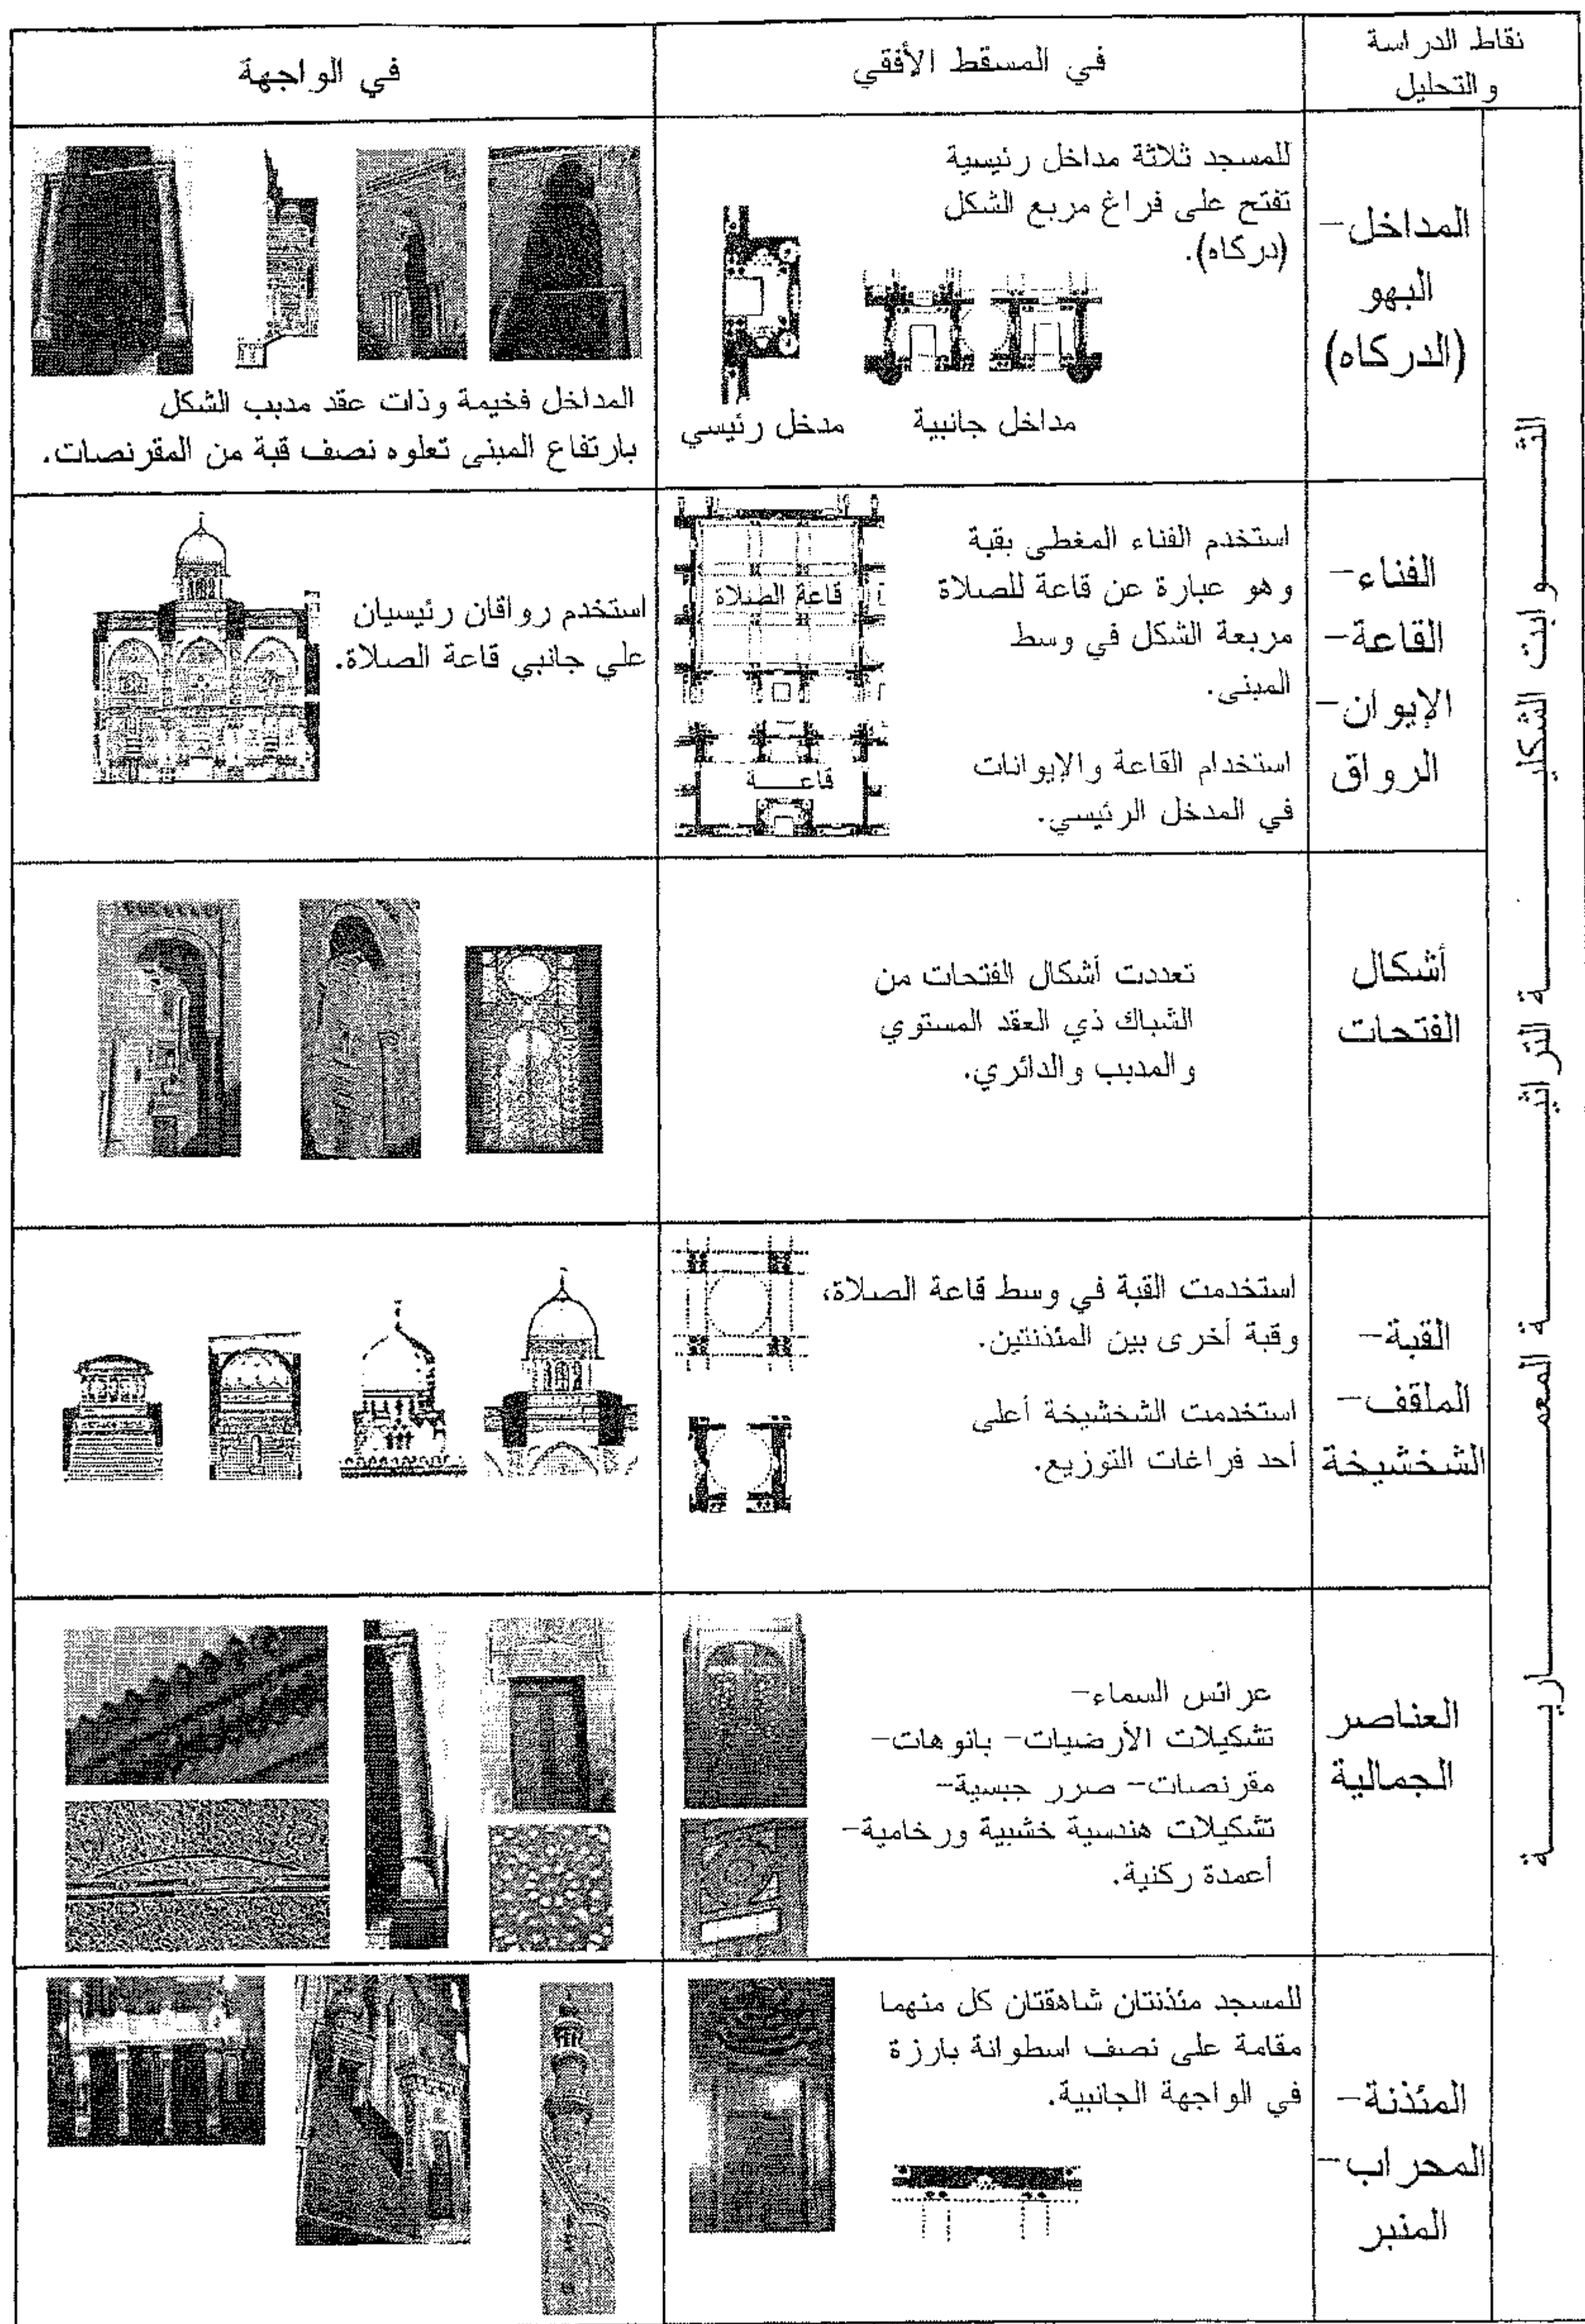 نقاط الدراسة
والتحليل
في المسقط الأفقي
في الواجهة
الثـــوابت الشكليـــة التراثيـــة المعمـــاريـــة
المداخل-
البهو
(الدركاه)
للمسجد ثلاثة مداخل رئيسية
تفتح على فراغ مربع الشكل
(دركاه).
مداخل جانبية
مدخل رئيسي
المداخل فخيمة وذات عقد مدبب الشكل
بارتفاع المبنى تعلوه نصف قبة من المقرنصات.
الفناء-
القاعة-
الإيوان-
الرواق
استخدم الفناء المغطى بقبة
وهو عبارة عن قاعة للصلاة
مربعة الشكل في وسط
المبنى.
استخدام القاعة والإيوانات
في المدخل الرئيسي.
قاعة الصلاة
قاعـــة
استخدم رواقان رئيسيان
على جانبي قاعة الصلاة.
أشكال
الفتحات
تعددت أشكال الفتحات من
الشباك ذي العقد المستوي
والمدبب والدائري.
القبة-
الملقف-
الشخشيخة
استخدمت القبة في وسط قاعة الصلاة،
وقبة أخرى بين المئذنتين.
استخدمت الشخشيخة أعلى
أحد فراغات التوزيع.
العناصر
الجمالية
عرائس السماء-
تشكيلات الأرضيات- بانوهات-
مقرنصات- صرر جبسية-
تشكيلات هندسية خشبية ورخامية-
أعمدة ركنية.
المئذنة-
المحراب-
المنبر
للمسجد مئذنتان شاهقتان كل منهما
مقامة على نصف اسطوانة بارزة
في الواجهة الجانبية.